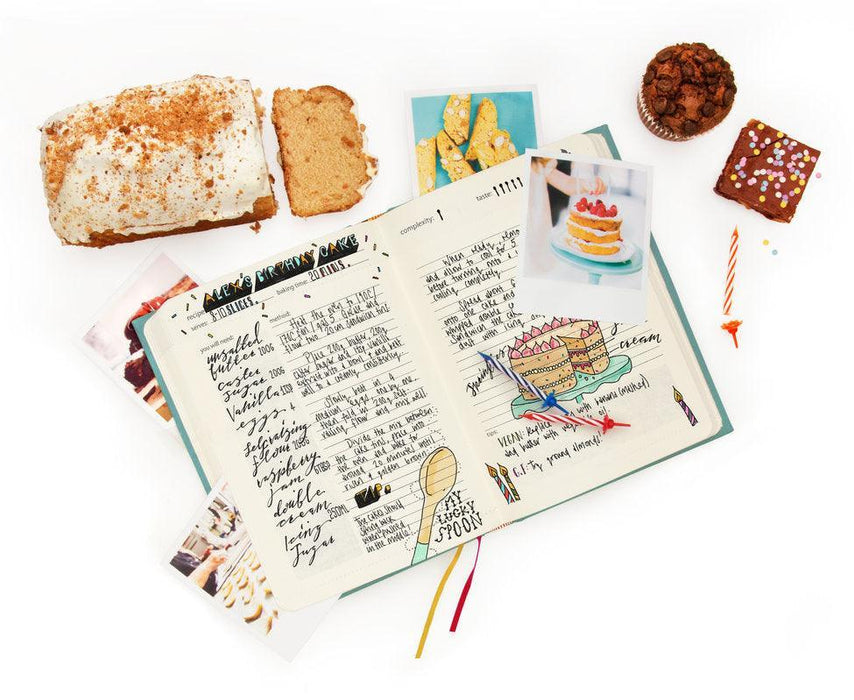 ALEX'S BIRTHDAY CAKE
recipe
serves: 8-10 SLICES.
baking time: 20 MINS.
you will need:
unsalted
butter 200G
caster
sugar 200G
Vanilla 1TSP
eggs 4
Selfraising
flour 200G
raspberry
jam
double
cream 250ML
Icing
Sugar
method:
Heat the oven to 190C/
170C fan / gas 5. Grease and
flour two 20cm sandwich tins.
Place 200g butter, 200g
caster sugar and 1tsp vanilla
extract into a bowl & beat
well to a creamy consistency.
Slowly beat in 4
medium eggs, one by one,
then fold in 200g self
raising flour and mix well.
Divide the mix between
the cake tins, place into
the oven and bake for
around 20 minutes until
risen & golden brown.
TIP.
The cakes should
spring back
when pushed
in the middle!
MY
LUCKY
SPOON
complexity:
taste:
When ready, remo
and allow to cool for 5
before turning
cooling completely.
Spread about 6
onto one cake and
whipped double
Sandwich the cake
dust with icing
cream
tips:
VEGAN: Replace with banana (mashed)
and butter with oil
G.F: Try ground almonds!